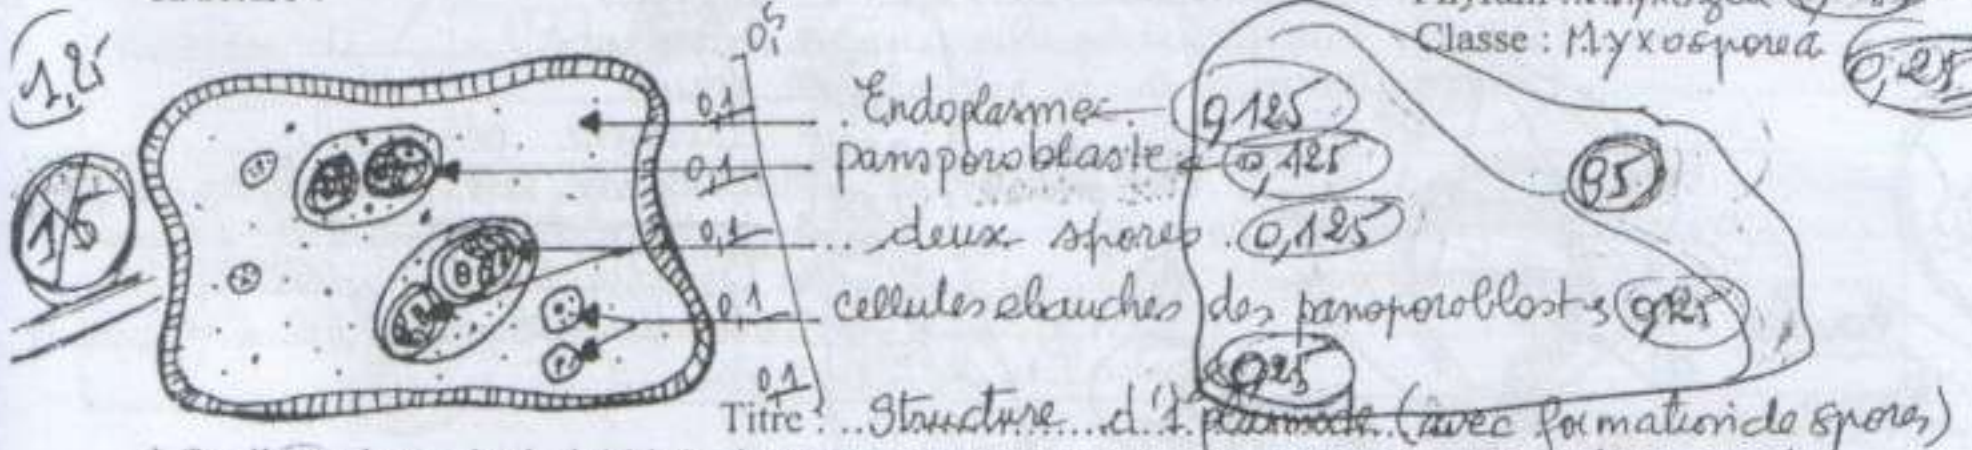 Classe : Myxosporea 0,25
1,25
0,5
0,1 Endoplasme 0,125
0,1 pansporoblaste 0,125
0,5
1,5
0,1 deux spores 0,125
0,1 cellules ebauches des pansporoblastes 0,125
0,25
0,1
Titre : Structure d'1 plasmode (avec formation de spores)